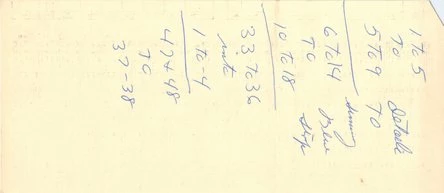 1 to 5
TO details
5 to 9 TO
6 to 14
TO Blue
10 to 18 strip
33 to 36
into
1 to -4
47+48
TO
37-38